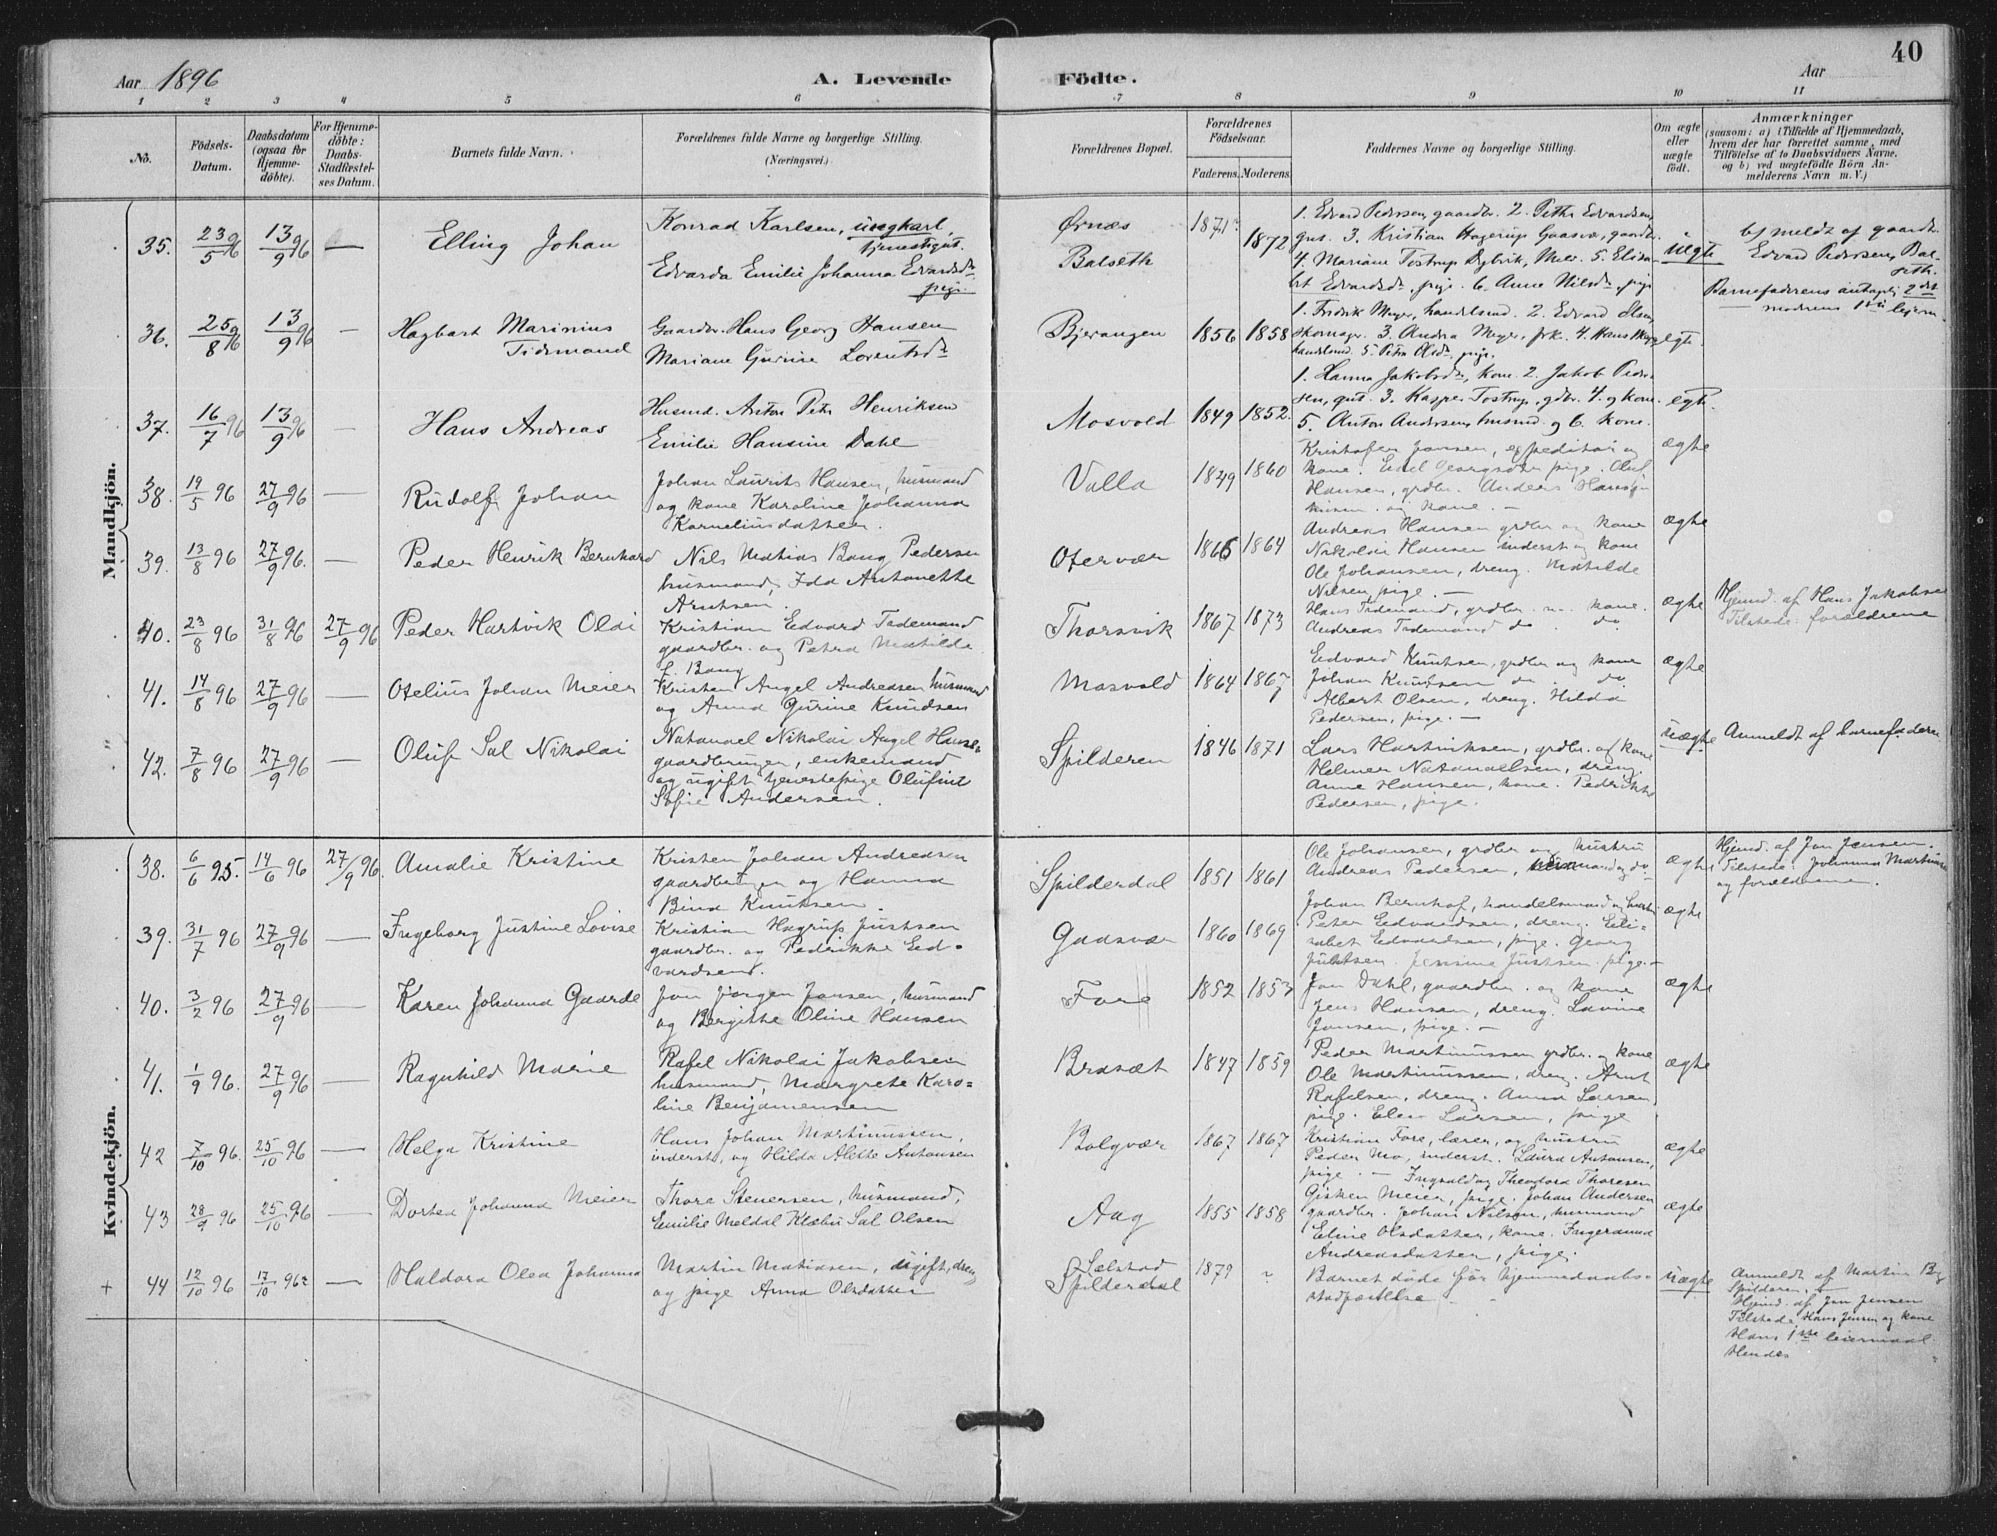 Aar 1896
A. Levende
Födte.
Aar
40
1 2 3 4 5 6 7 8 9 10 11
No.
Födsels-Datum.
Daabsdatum (ogsaa for Hjemme-döbte).
For Hjemme-döbte: Daabs-Stadfæstel-ses Datum.
Barnets fulde Navn.
Forældrenes fulde Navne og borgerlige Stilling.
(Næringsvei.)
Forældrenes Bopæl.
Forældrenes Födselsaar.
Faderens. Moderens.
Faddernes Navne og borgerlige Stilling.
Om ægte eller uægte födt.
Anmærkninger
(saasom: a) i Tilfælde af Hjemmedaab,
hvem der har forrettet samme, med
Tilföielse af to Daabsvidners Navne,
og b) ved uægtefödte Börn An-
melderens Navn m. V.)
Mandkjön.
35. 23/5 96 13/9 96 — Elling Johan
Konrad Karlsen, ungkarl,
tjenestegut.
Edvarda Emilie Johanna Edvardsdr
pige.
Ørnæs
Balseth
1871 1872
1. Edvard Pedersen, gaardbr. 2. Pethr Edvardsen,
gut. 3. Kristian Hagerup Gaasvær, gaardbr.
4. Mariane Tostrup Dybvik, 5. Elisa-
bet Edvardsdr, pige. 6. Anne Nilsdr, pige
uegte
b) meldt af gaardbr.
Edvard Pedersen, Bal-
seth.
Barnefaderens antagelig 2det
moderens 1ste leierm.
36. 25/8 96 13/9 96 — Hagbart Marinius
Tidemand
Gaardbr. Hans Georg Hansen
Mariane Gurine Lorentsdr
Bjerangen 1856 1858
1. Fredrik Meyer, handelsmd. 2. Edvard Olsen,
skomager. 3. Andrea Meyer, frk. 4. Hans Meyer
handelsmd. 5. Petra Olsdr, pige.
egte
37. 16/7 96 13/9 96 — Hans Andreas
Husmd. Anton Petr Henriksen
Emilie Hansine Dahl
Mosvold 1849 1852.
1. Hanna Jakobsdr, kone. 2. Jakob Peder-
sen, gut. 3. Kasper Tostrup, gdbr. 4. og kone.
5. Anton Andersen, husmd. og 6. kone.
egte.
38. 19/5 96 27/9 96 — Rudolf Johan
Johan Laurits Hansen, husmand
og kone Karoline Johanna
Korneliusdatter.
Valla 1849 1860
Kristofer Jansen, expeditør og
kone. Emil Georgsen pige. Oluf
Hansen, grdbr. Anders Hansen
husm. og kone. —
ægte
39. 13/8 96 27/9 96. — Peder Henrik Bernhard
Nils Mathias Bang Pedersen
husmand, Ida Antonette
Arntsen.
Otervær 1865 1864
Andreas Hansen grdbr og kone
Nikolai Hansen inderst og kone
Ole Johansen, dreng. Mathilde
Nilsen, pige. —
ægte
40. 23/8 96 31/8 96 27/9 96 Peder Hartvik Olai
Kristian Edvard Tidemand
gaardbr. og Petra Matilde
f. Bang
Thorsvik 1867 1873
Hans Tidemand, grdbr. kone.
Andreas Tidemand do. do.
ægte
Hjemd. af Hans Jakobsen
Tilstede: forældrene
41. 14/8 96 27/9 96 — Otelius Johan Meier
Kristen Angel Andreasen husmand
og Anna Gurine Knudsen
Mosvold 1864 1867
Edvard Knutsen, grdbr og kone
Johan Knutsen do. do.
Albert Olsen, dreng. Hilda
Pedersen, pige. —
ægte
42. 7/8 96 27/9 96 — Oluf Sal Nikolai
Natanael Nikolai Angel Hansen
gaardbruger, enkemand
og ugift tjenestepige Olufine
Sofie Andersen.
Spilderen 1846 1871
Lars Hartviksen, grdbr. og kone
Helmer Natanaelsen, dreng.
Anne Hansen, kone. Pedrikke
Pedersen, pige.
uægte
Anmeldt af barnefaderen
Kvindekjön.
38. 6/6 95. 14/6 96 27/9 96. Amalie Kristine
Kristen Johan Andreasen
gaardbruger og Hanna
Bina Knutsen.
Spilderdal 1851 1861
Ole Johansen, grdbr og hustru
Andreas Pedersen, husmand og do.
ægte
Hjemd. af Jon Jensen.
Tilstede: Johanna Martinsen
og forældrene.
39. 31/7 96 27/9 96 — Ingeborg Justine Lovise
Kristian Hagrup Justsen
gaardbr. og Pedrikke Ed-
vardsen.
Gaasvær 1860 1869
Johan Bernhof, handelsmand og hustru
Peter Edvardsen, dreng. Eli-
sabet Edvardsen, pige. Georg
Justsen. Jensine Justsen. pige. —
ægte
40. 3/2 96 27/9 96 — Karen Johanna Gaarde
Jon Jørgen Jansen, husmand
og Bergitte Oline Hansen
Fore 1852 1853
Jon Dahl, gaardbr. og kone
Jens Hansen, dreng. Lavine
Jansen, pige. —
ægte
41. 1/9 96. 27/9 96 — Ragnhild Marie
Rafel Nikolai Jakobsen
husmand, Margrete Karo-
line Benjamensen
Brasæt 1847 1859
Peder Martinussen grdbr. og kone
Ole Martinussen, dreng. Arnt
Rafelsen, dreng. Anna Larsen,
pige. Elen Larsen, pige
ægte
42 7/10 96. 25/10 96 — Helga Kristine
Hans Johan Martinussen,
inderst, og Hilda Alette Antonsen
Bolgvær 1867 1867
Kristian Fore, lærer, og hustru
Peder Mo, inderst. Laura Antonsen,
pige. —
ægte
43 28/9 96 25/10 96 — Dortea Johanna Meier
Thore Stenersen, husmand,
Emilie Meldal Klæbu Sal Olsen
Aag 1855 1858
Ingvald og Theodora Thoresen
Gisken Meier, pige. Johan Andersen
gaardbr. Johan Nilsen, husmand
Eline Olsdatter, kone. Ingeranna
Andreasdatter, pige.
ægte
+ 44 12/10 96 17/10 96 — Haldora Olea Johanna
Martin Matiasen, ugift, dreng
og pige Anna Olsdatter
Sælstad
Spilderdal
1879 "
Barnet døde før hjemmedaabs-
stadfæstelse
uægte
Anmeldt af Martin
Spilderen. —
Hjemd. af Jon Jensen
Tilstede Hans Jensen og kone
Hans 1ste leiermaal
Hendes "